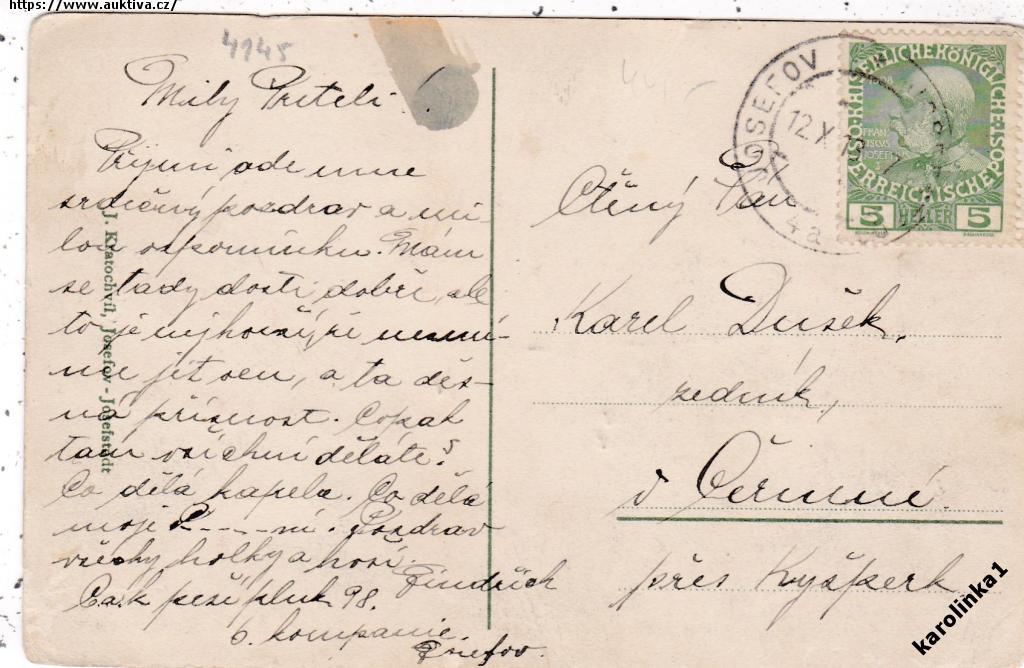 https://www.auktiva.cz/
4145
Milý Příteli!
Přijmi ode mne
srdečný pozdrav a mi-
lou vzpomínku. Mám
se tady dosti dobře, ale
to je nejhorsý že nesmí-
me jít ven, a ta děs-
ná přísnost. Copak
tam všichni děláte?
Co dělá kapela. Co dělá
moje P----ní. Pozdrav
všecky holky a hoši.
Jindřich
C a k pěší pluk 98.
6. kompanie
Josefov.
J. Kratochvíl, Josefov - Josefstadt
JOSEFOV
12 X 13
4a
KAISERLICHE KÖNIGLICHE
ÖSTERREICHISCHE POST
FRANCISCUS JOSEF I
1908
5 HELLER 5
Ctěný Pan
Karel Dušek,
zedník,
v Čermné
přes Kyšperk
karolinka1